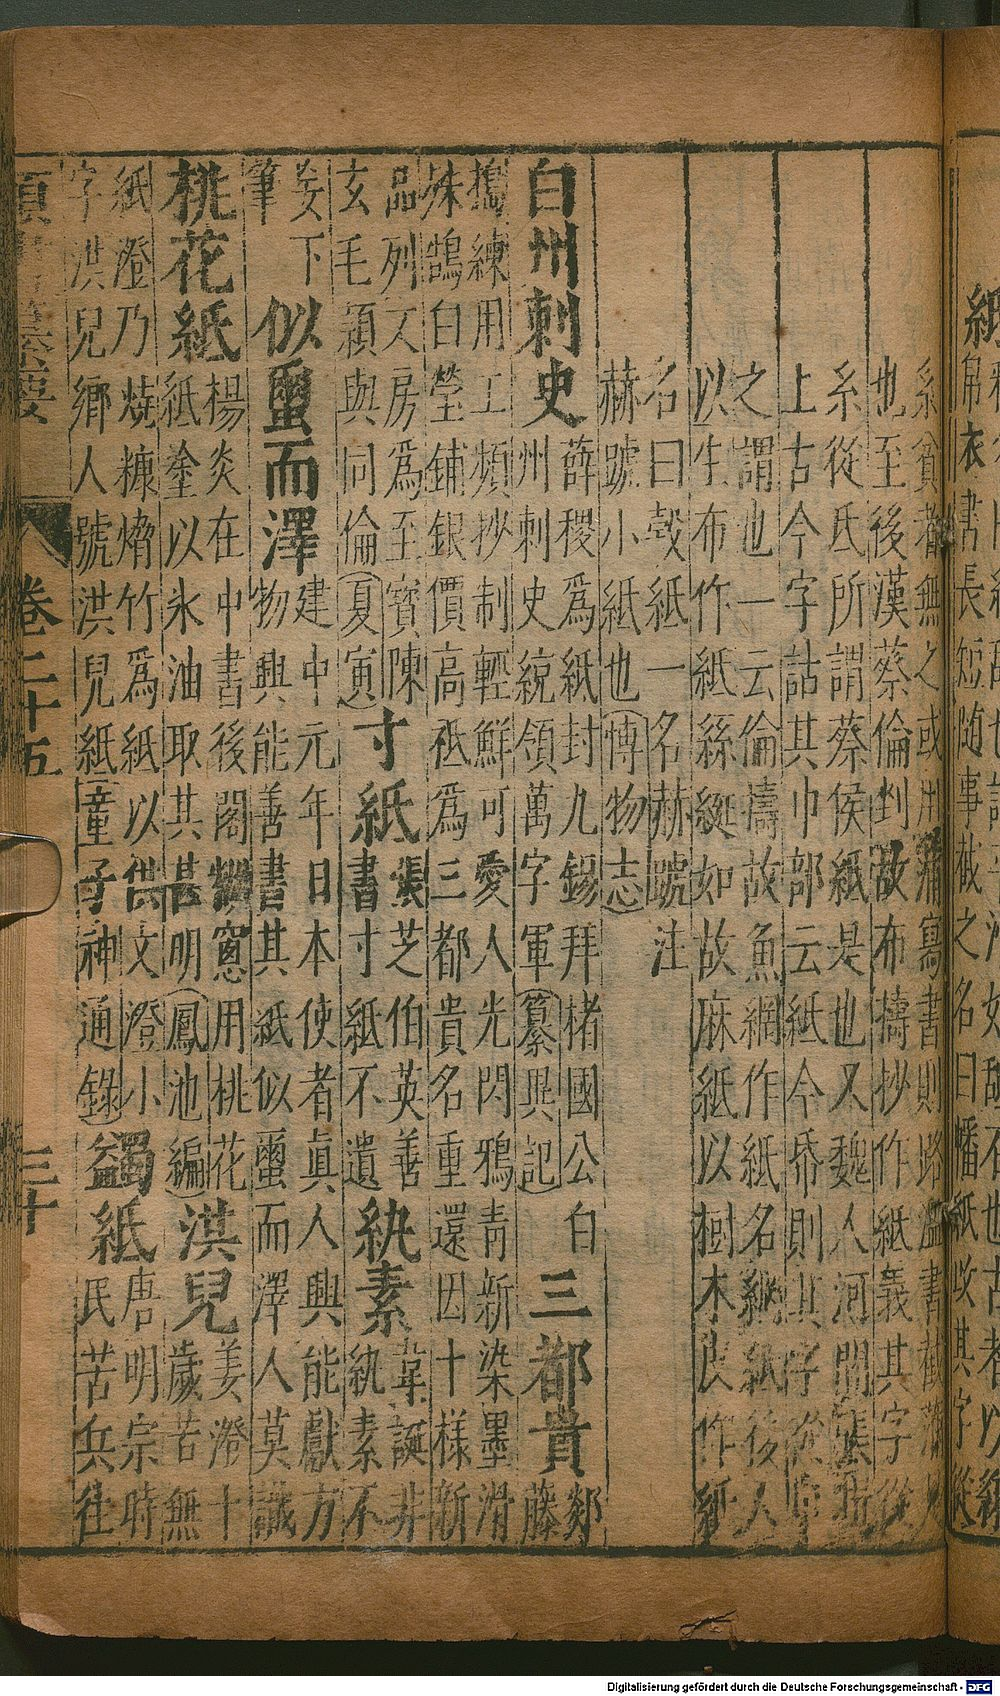 紙
帛衣書長短随事截之名曰幡紙故其字從
糸貧者無之或用蒲寫書則路溫書截蒲
也至後漢蔡倫剉故布擣抄作紙義其字從
糸從氏所謂蔡侯紙是也又魏人河間張揖
上古今字詁其巾部云紙今帋則其字從巾
之謂也一云倫擣故魚網作紙名網紙後人
以生布作紙絲綖如故麻紙以樹木皮作紙
名曰榖紙一名赫蹏注
赫蹏小紙也(博物志)
白州刺史
薛稷爲紙封九錫拜楮國公白
州刺史統領萬字軍(纂異記)
三都貴
郯
藤
搗練用工頻抄制輕鮮可愛人光閃鴉青新染墨滑
殊鵠白瑩鋪銀價高祗爲三都貴名重還因十樣新
品列文房爲至寶陳
玄毛穎與同倫(夏寅)
寸紙
張芝伯英善
書寸紙不遺
紈素
韋誕非
紈素不
妄下
筆
似蠒而澤
建中元年日本使者眞人興能獻方
物興能善書其紙似蠒而澤人莫識
桃花紙
楊炎在中書後閣糊窻用桃花
紙塗以氷油取其甚明(鳳池編)
洪兒
姜澄十
歲苦無
紙澄乃燒糠爚竹爲紙以供文澄小
字洪兒鄉人號洪兒紙(童子神通錄)
蠲紙
唐明宗時
民苦兵往
卷二十五
三十
Digitalisierung gefördert durch die Deutsche Forschungsgemeinschaft - DFG